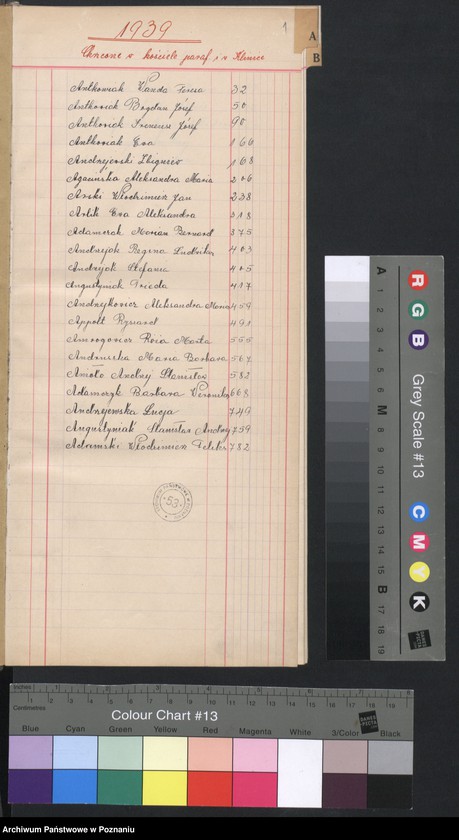 1939
1
A
B
Chrzone w kościele paraf.
Antkowiak Wanda Teresa 32
Antkowiak Bogdan Józef 50
Antkowiak Ireneusz Józef 90
Antkowiak Ewa 166
Andrzejewski Zbigniew 168
Agacińska Aleksandra Maria 206
Arski Włodzimierz Jan 238
Ewa Aleksandra 318
Adamczak Marian Bernard 375
Andrzejak Regina Ludwika 403
Andrzejak Stefania 405
Augustyniak Frieda 417
Aleksandra Maria 459
Appolt Ryszard 491
Róża Marta 555
Maria Barbara 567
Andrzej Stanisław 582
Adamczyk Barbara Weronika 668
Andrzejewska Lucja 749
Augustyniak Stanisław Andrzej 759
Adamski Włodzimierz 782
53
R G B
Grey Scale #13
C M Y K
A 1 2 3 4 5 6 M 8 9 10 11 12 13 14 15 B 17 18 19
Inches 1 2 3 4 5 6 7 8
Centimetres 1 2 3 4 5 6 7 8 9 10 11 12 13 14 15 16 17 18 19
Colour Chart #13
Blue Cyan Green Yellow Red Magenta White 3/Color Black
Archiwum Państwowe w Poznaniu